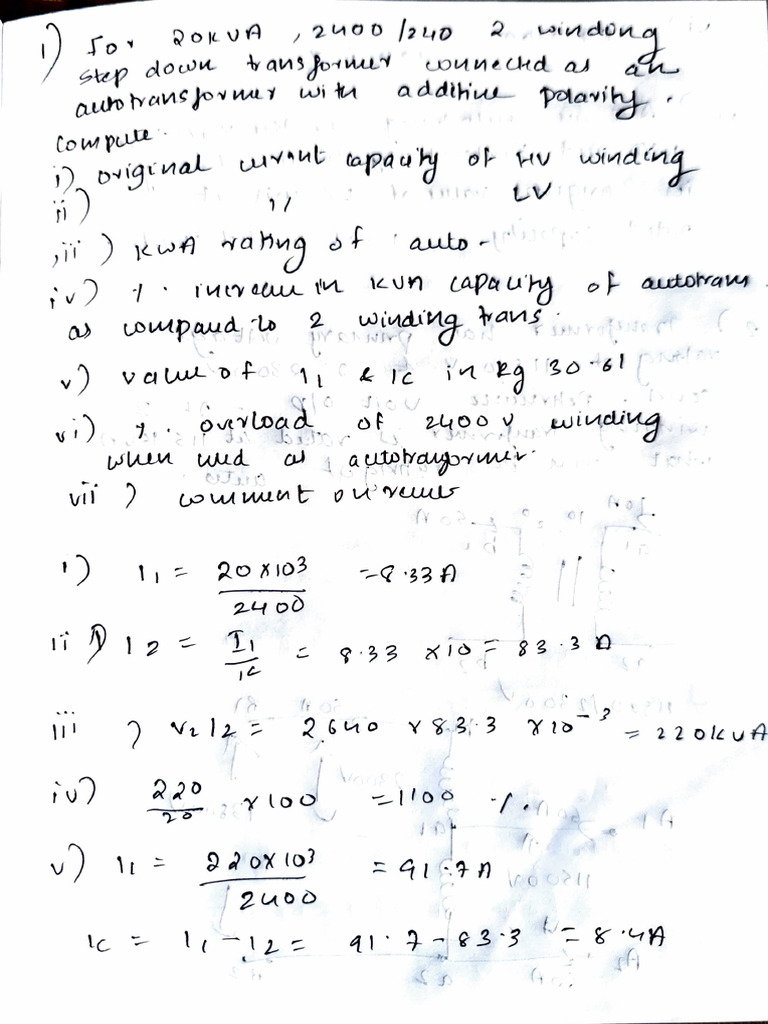 1) For 20KVA, 2400/240 2 windong
step down transformer connected as an
autotransformer with additive polarity.
compute.
i) original current capacity of HV winding
ii) " LV
iii) KWA rating of auto-
iv) % increase in KVA capacity of autotrans
as compared to 2 winding trans.
v) value of I1 & Ic in Rg 30.61
vi) % overload of 2400 V winding
when used as autotransformer.
vii) comment on
i) I1 = 20×10³ / 2400 = 8.33A
ii) I2 = I1/K = 8.33 ×10 = 83.3 A
iii) V2 I2 = 2640 × 83.3 ×10⁻³ = 220KVA
iv) 220/20 ×100 = 1100 %.
v) I1 = 220×10³ / 2400 = 91.7A
Ic = I1 - I2 = 91.7 - 83.3 = 8.4A